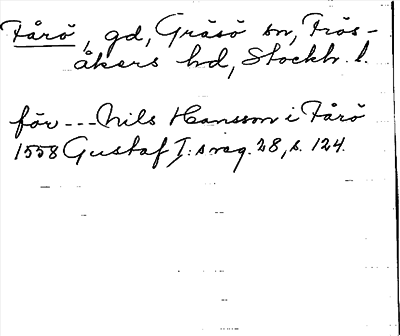 Fårö, gd, Gräsö sn, Frös-
åkers hd, Stockh. l.
för --- Nils Hansson i Fårö
1558 Gustaf I:s reg. 28, s. 124.